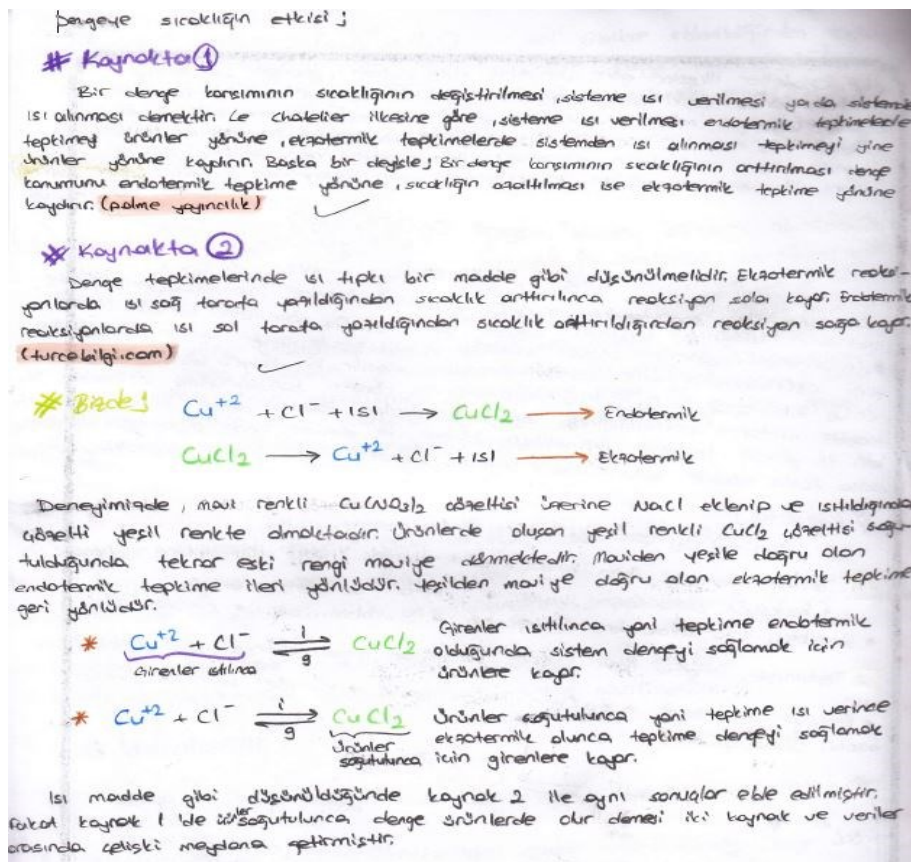 Dengeye sıcaklığın etkisi;
# Kaynakta ①
Bir denge karışımının sıcaklığının değiştirilmesi, sisteme ısı verilmesi yada sistemden
ısı alınması demektir. Le chatelier ilkesine göre, sisteme ısı verilmesi endotermik tepkimelerde
tepkimeyi ürünler yönüne, ekzotermik tepkimelerde sistemden ısı alınması tepkimeyi yine
ürünler yönüne kaydırır. Başka bir deyişle; Bir denge karışımının sıcaklığının arttırılması denge
konumunu endotermik tepkime yönüne, sıcaklığın azaltılması ise ekzotermik tepkime yönüne
kaydırır. (palme yayıncılık)
# Kaynakta ②
Denge tepkimelerinde ısı tıpkı bir madde gibi düşünülmelidir. Ekzotermik reaksi-
yonlarda ısı sağ tarafa yazıldığından sıcaklık arttırılınca reaksiyon sola kayar. Endotermik
reaksiyonlarda ısı sol tarafa yazıldığından sıcaklık arttırıldığından reaksiyon sağa kayar.
(turcebilgi.com)
# Bizde;
Cu⁺² + Cl⁻ + ısı → CuCl₂ → Endotermik
CuCl₂ → Cu⁺² + Cl⁻ + ısı → Ekzotermik
Deneyimizde, mavi renkli Cu(NO₃)₂ çözeltisi üzerine NaCl eklenip ve ısıtıldığında
çözelti yeşil renkte olmaktadır. Ürünlerde oluşan yeşil renkli CuCl₂ çözeltisi soğu-
tulduğunda tekrar eski rengi maviye dönmektedir. Maviden yeşile doğru olan
endotermik tepkime ileri yönlüdür. Yeşilden maviye doğru olan ekzotermik tepkime
geri yönlüdür.
* Cu⁺² + Cl⁻ ⇌ CuCl₂
i
g
Girenler ısıtılınca
Girenler ısıtılınca yani tepkime endotermik
olduğunda sistem dengeyi sağlamak için
ürünlere kayar.
* Cu⁺² + Cl⁻ ⇌ CuCl₂
i
g
Ürünler
soğutulunca
Ürünler soğutulunca yani tepkime ısı verince
ekzotermik olunca tepkime dengeyi sağlamak
için girenlere kayar.
Isı madde gibi düşünüldüğünde kaynak 2 ile aynı sonuçlar elde edilmiştir.
Fakat kaynak 1'de soğutulunca denge ürünlerde olur demesi iki kaynak ve veriler
arasında çelişki meydana getirmiştir.